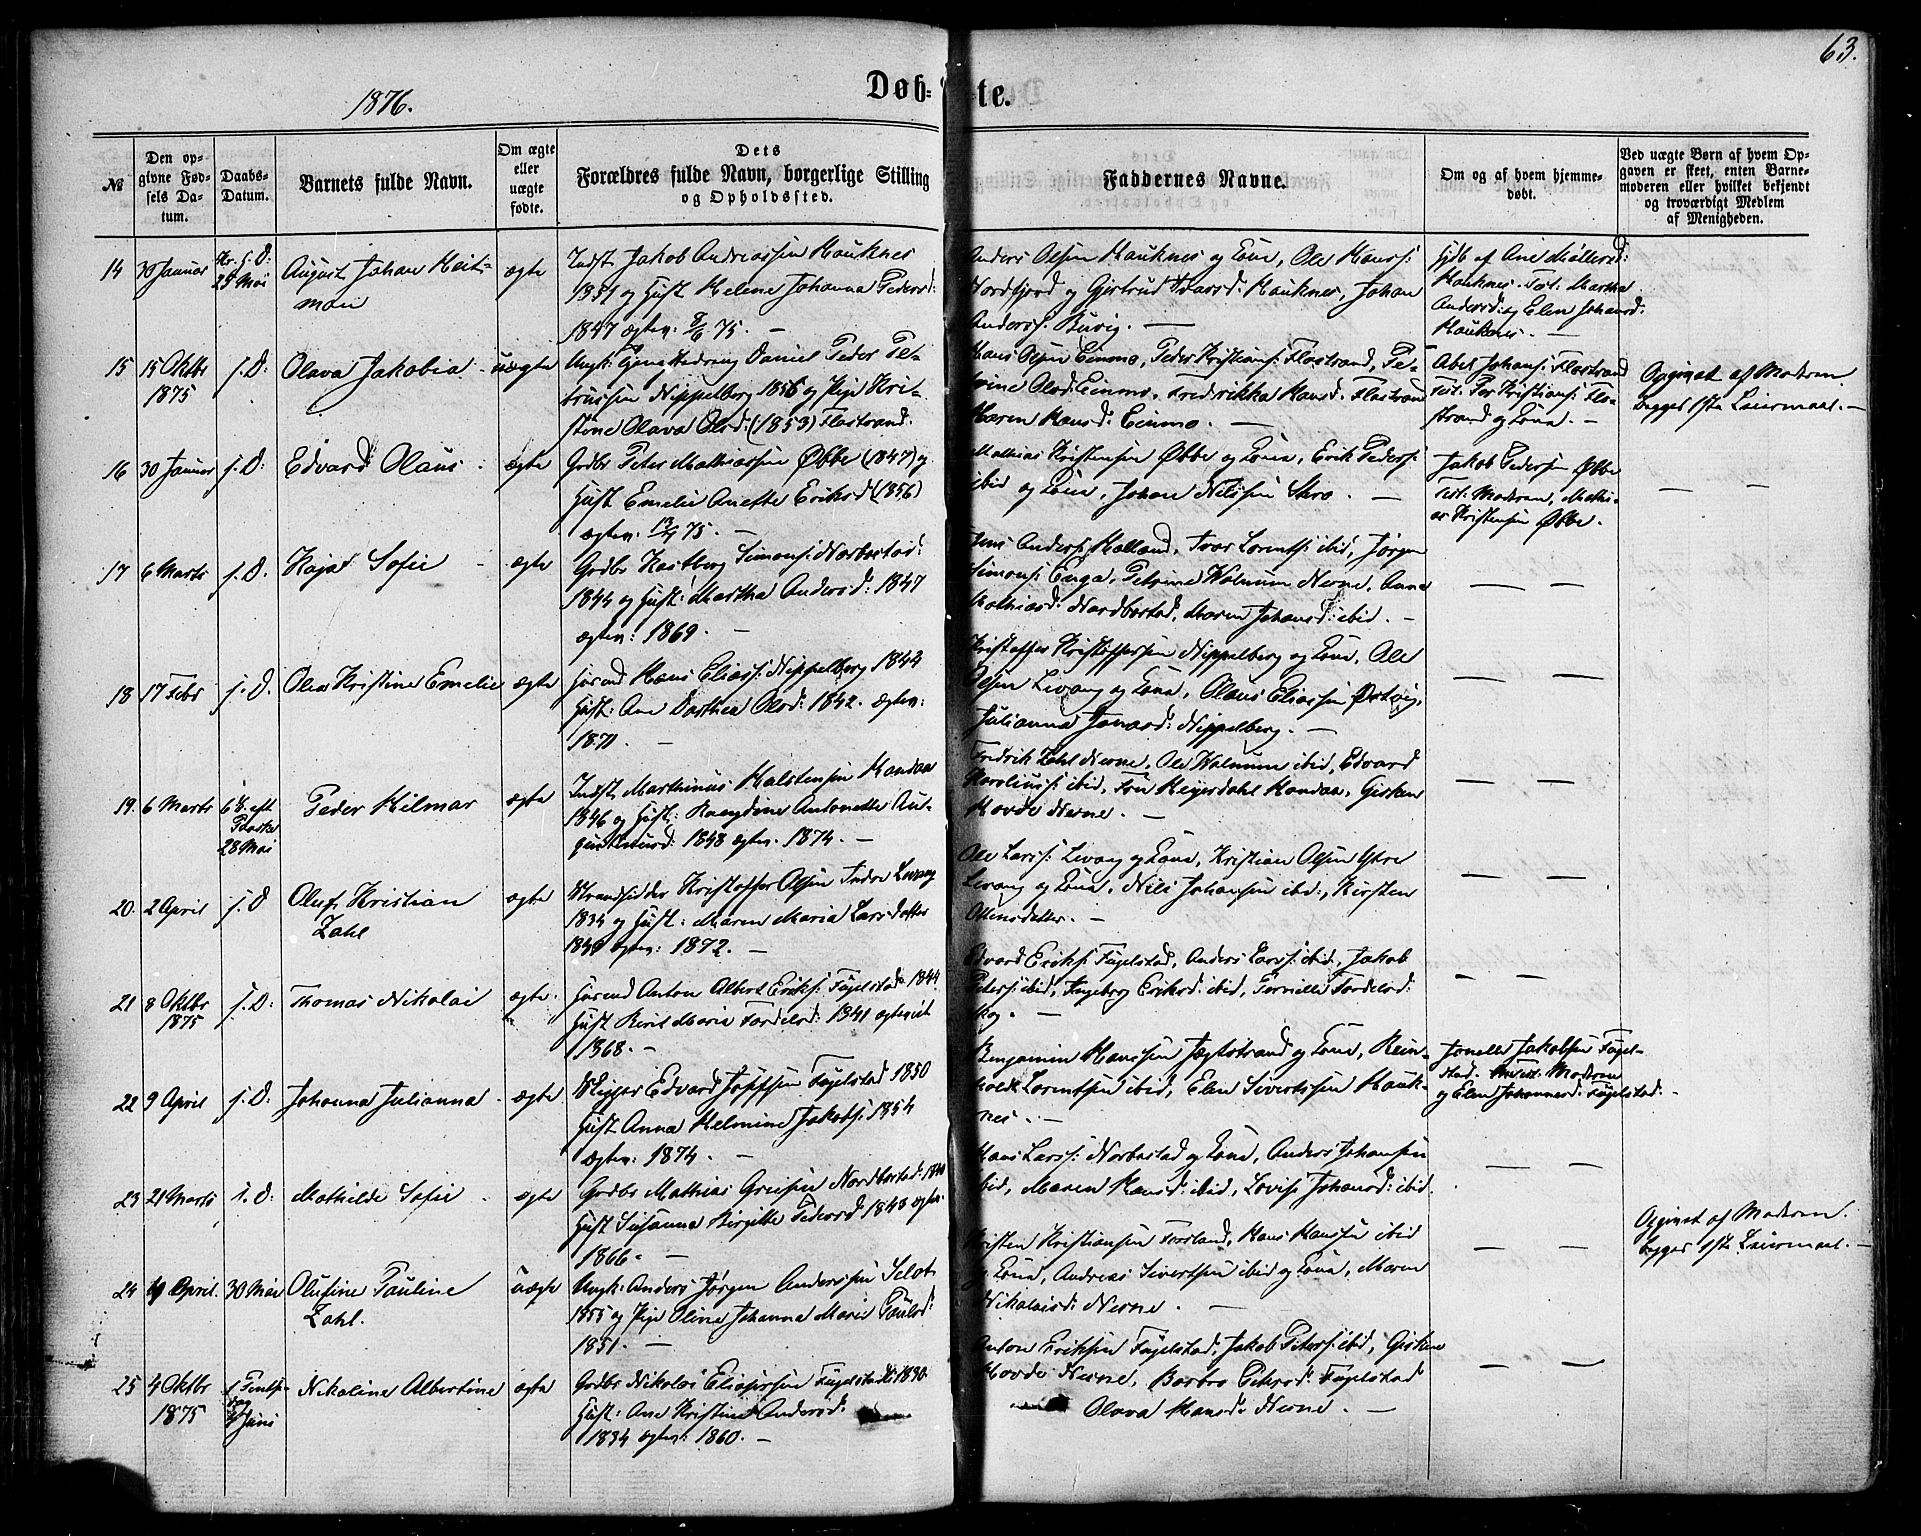 63.
1876.
Døb-
te.
№
Den op-
givne Fød-
sels Da-
tum.
Daabs-
Datum.
Barnets fulde Navn.
Om ægte
eller
uægte
fødte.
Dets
Forældres fulde Navn, borgerlige Stilling
og Opholdssted.
Faddernes Navne.
Om og af hvem hjemme-
døbt.
Ved uægte Børn af hvem Op-
gaven er skeet, enten Barne-
moderen eller hvilket bekjendt
og troværdigt Medlem
af Menigheden.
14
30 Januar
25 Mai
August Johan Heit-
man
ægte
Indst. Jakob Andreassen Hauknes
1851 og Hust. Helene Johanna Pedersd:
1847 ægtev: 8/6 75. —
Anders Olsen Hauknes og Kone, Ole Hanss:
Nordfjord og Gjertrud Ivarsd: Hauknes, Johan
Anderss: Buvig. —
Hjdb af Ane
Hauknes. Test. Martha
Andersd: og Elen Johansd:
Hauknes. —
15
15 Oktbr
1875
s. D:
Olava Jakobia
uægte
Ungk: Daniel Peder Pe-
trussen Nippelberg 1856 og Pige Kri-
stine Olava Olsd: (1853) Flostrand.
Hans Olsen Einmo, Peder Kristians: Flostrand, Pe-
trine Olsd: Einmo, Fredrikka Hansd: Flostrand
Maren Hansd: Einmo. —
Abel Johans: Flostrand
Test. Per Kristians: Flo-
strand og Kone. —
Opgivet af Modren.
begges 1ste Leiermaal. —
16
30 Januar
s. D:
Edvard Olaus
ægte
Grdbr Peter Mathiassen Øbbe (1847) og
Hust Emelie Anette Eriksd: (1856)
ægtev: 13/7 75. —
Mathias Kristensen Øbbe og Kone, Erik Peders:
ibid og Kone, Johan Nilssen —
Jakob Pedersen Øbbe
Test: Modren, Mathi-
as Kristensen Øbbe.
— —
17
6 Marts
s. D.
Kaja Sofie
ægte
Grdbr Hartvig Simons: Norbostad:
1844 og Hust: Martha Andersd: 1847
ægtev: 1869. —
Jens Anders: Molland, Ivar Lorents: ibid, Jørgen
Simons: Enga, Petrine Walnum Nesne, Anne
Mathiasd: Nordbostad, Maren Johansd: ibid. —
— —
18
17 Febr
s. D.
Olea Kristine Emelie
ægte
Gaard Hans Elias: Nippelberg 1844
Hust: Ane Dorthea Olsd: 1842. ægtev:
1870. —
Kristoffer Kristoffersen Nippelberg og Kone, Ole
Olsen Levang og Kone, Olaus Eliassen Østvig,
Julianna Jonasd: Nippelberg. —
— —
19.
6 Marts
6 S. eft
Paaske
28 Mai
Peder Hilmar
ægte
Indst Marthinus Halstensen Handaa
1846 og Hust: Antonette Au-
gustinusd: 1848 ægtev. 1874. —
Fredrik Zahl Nesne, Ole Walnum ibid, Edvard
Karolius: ibid, Fru Meyerdahl Handaa, Gisken
Hovde Nesne. —
— —
20.
2 April
s. D
Oluf Kristian
Zahl
ægte
Strandsidder Kristoffer Olsen Indre Levang
1834 og Hust: Maren Maria Larsdatter
1846 ægtev: 1872. —
Ole Lars: Levang og Kone, Kristian Olsen Ytre
Levang og Kone, Nils Johansen ibid, Kirsten
Ottensdatter. —
— —
21
8 Oktbr
1875
s. D:
Thomas Nikolai
ægte.
Gaard Anton Albert Eriks: Fagelstad: 1844
Hust Berit Maria Tordelsd: 1841 ægteviet
1868. —
Edvard Eriks: Fagelstad, Anders Lars: ibid, Jakob
Peters: ibid, Ingeborg Eriksd: ibid, Pernille Tordelsd:
Skog. —
— —
22
9 April
s. D.
Johanna Julianna
ægte
Edvard Josefsen Fagelstad 1850
Hust Anna Helmine Jakobs: 1854
ægtev: 1874. —
Benjamin Hanssen Jægtstrand og Kone, Rein-
holdt Lorentsen ibid, Elen Sivertsen Hauk-
nes. —
Jonetta Jakobsen Fagel-
stad. Test: Modren
og Elen Johannesd: Fagelstad.
23
21 Marts
s. D.
Mathilde Sofie
ægte
Grdbr Mathias Greisen Nordbostad: 1840
Hust Susanna Birgitte Pedersd 1843 ægtev.
1866. —
Hans Lars: Norbostad og Kone, Anders Johansen
ibid, Maren Hansd: ibid, Lovise Johansd: ibid.
— —
24
19 April.
30 Mai
Olufine Pauline
Zahl.
uægte
Ungk: Anders Jørgen Anderssen
1855 og Pige Oline Johanna Marie Paulsd:
1851. —
Kristen Kristiansen Forsland, Hans Hanssen ibid
og Kone, Andreas Sivertsen ibid og Kone, Maren
Nikolaisd: Nesne. —
— —
Opgivet af Modren.
begges 1ste Leiermaal. —
25
4 Oktbr
1875
1 Pintse-
dag
4 Juni
Nikoline Albertine
ægte
Grdbr Nikolai Eliesersen Fagelstad: 1830
Hust: Ane Kristine Andersd:
1834 ægtev: 1860. —
Anton Eriksen Fagelstad, Jakob Peters: ibid, Gisken
Hovde Nesne, Barbro Petersd: Fagelstad
Olava Hansd: Nesne. —
— —